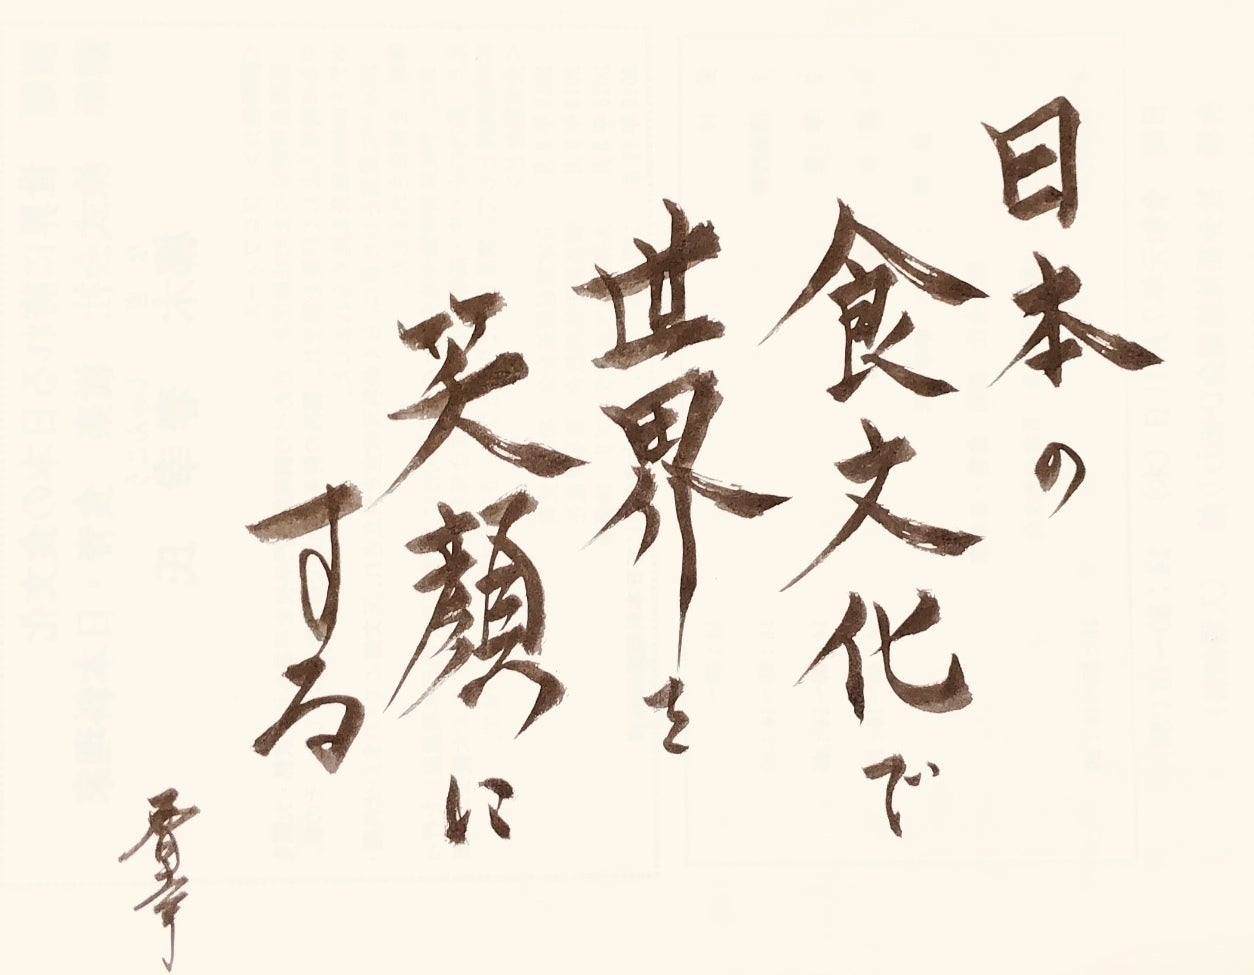 日本の
食文化で
世界を
笑顔に
する